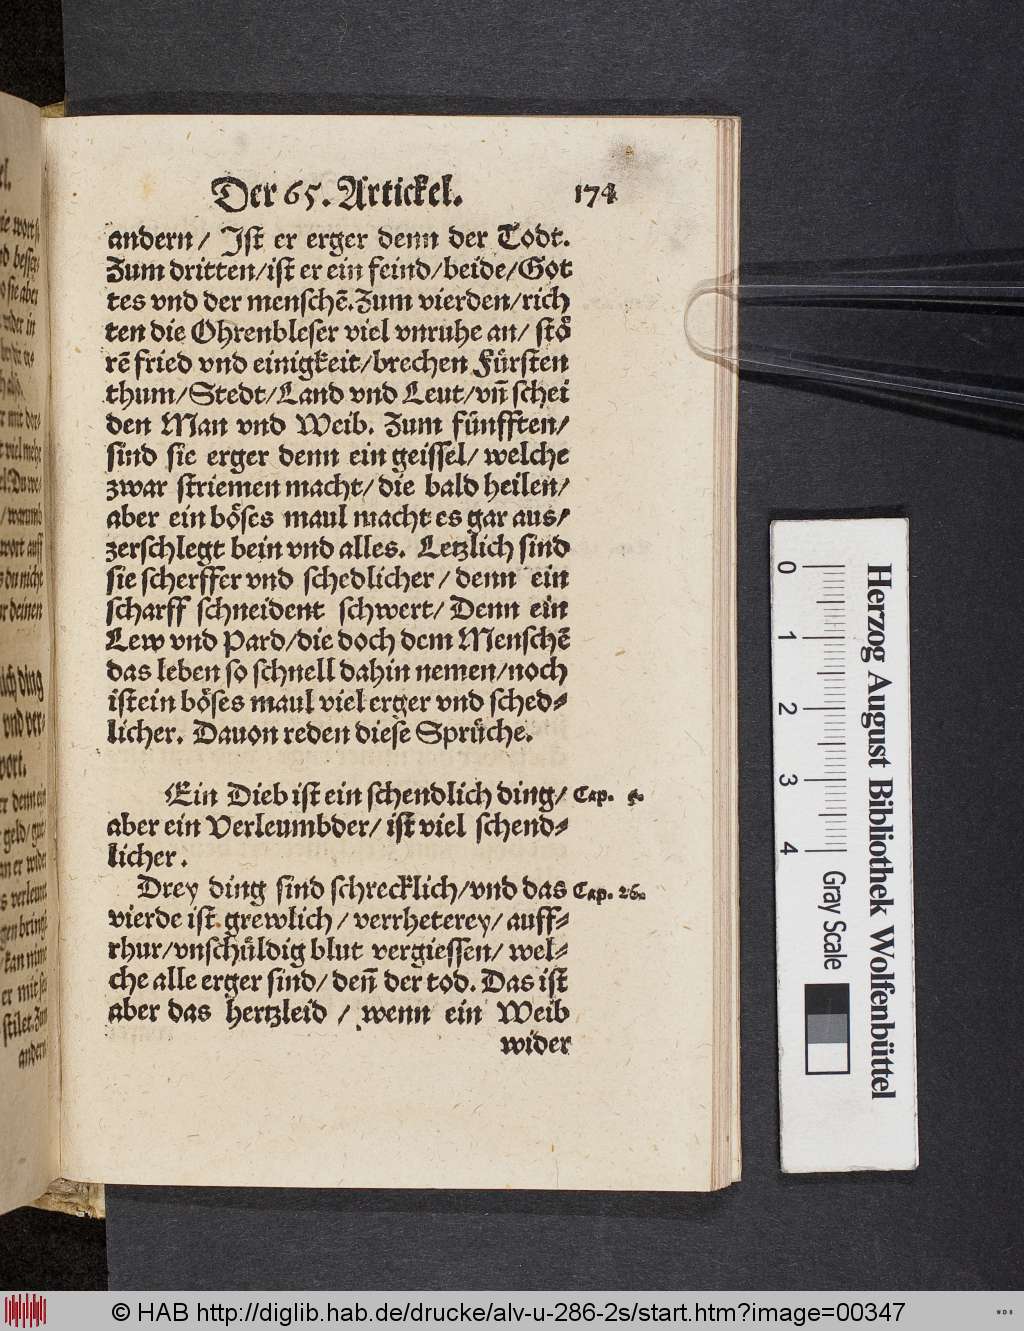 Der 65. Artickel. 174
andern/ Ist er erger denn der Todt.
Zum dritten/ist er ein feind/beide/Got
tes vnd der menschẽ.Zum vierden/rich
ten die Ohrenbleser viel vnruhe an/ stoͤ
rẽ fried vnd einigkeit/brechen Fuͤrsten
thum/Stedt/Land vnd Leut/vñ schei
den Man vnd Weib. Zum fuͤnfften/
sind sie erger denn ein geissel/ welche
zwar striemen macht/ die bald heilen/
aber ein boͤses maul macht es gar aus/
zerschlegt bein vnd alles. Letzlich sind
sie scherffer vnd schedlicher / denn ein
scharff schneident schwert/ Denn ein
Lew vnd Pard/die doch dem Menschẽ
das leben so schnell dahin nemen/noch
ist ein boͤses maul viel erger vnd sched⸗
licher. Dauon reden diese Spruͤche.
Ein Dieb ist ein schendlich ding/ Cap. 5.
aber ein Verleumbder/ ist viel schend⸗
licher.
Drey ding sind schrecklich/vnd das Cap. 26.
vierde ist grewlich / verrheterey/ auff⸗
rhur/vnschuͤldig blut vergiessen/ wel⸗
che alle erger sind/ deñ der tod. Das ist
aber das hertzleid / wenn ein Weib
wider
Herzog August Bibliothek Wolfenbüttel
0 1 2 3 4 Gray Scale
© HAB http://diglib.hab.de/drucke/alv-u-286-2s/start.htm?image=00347